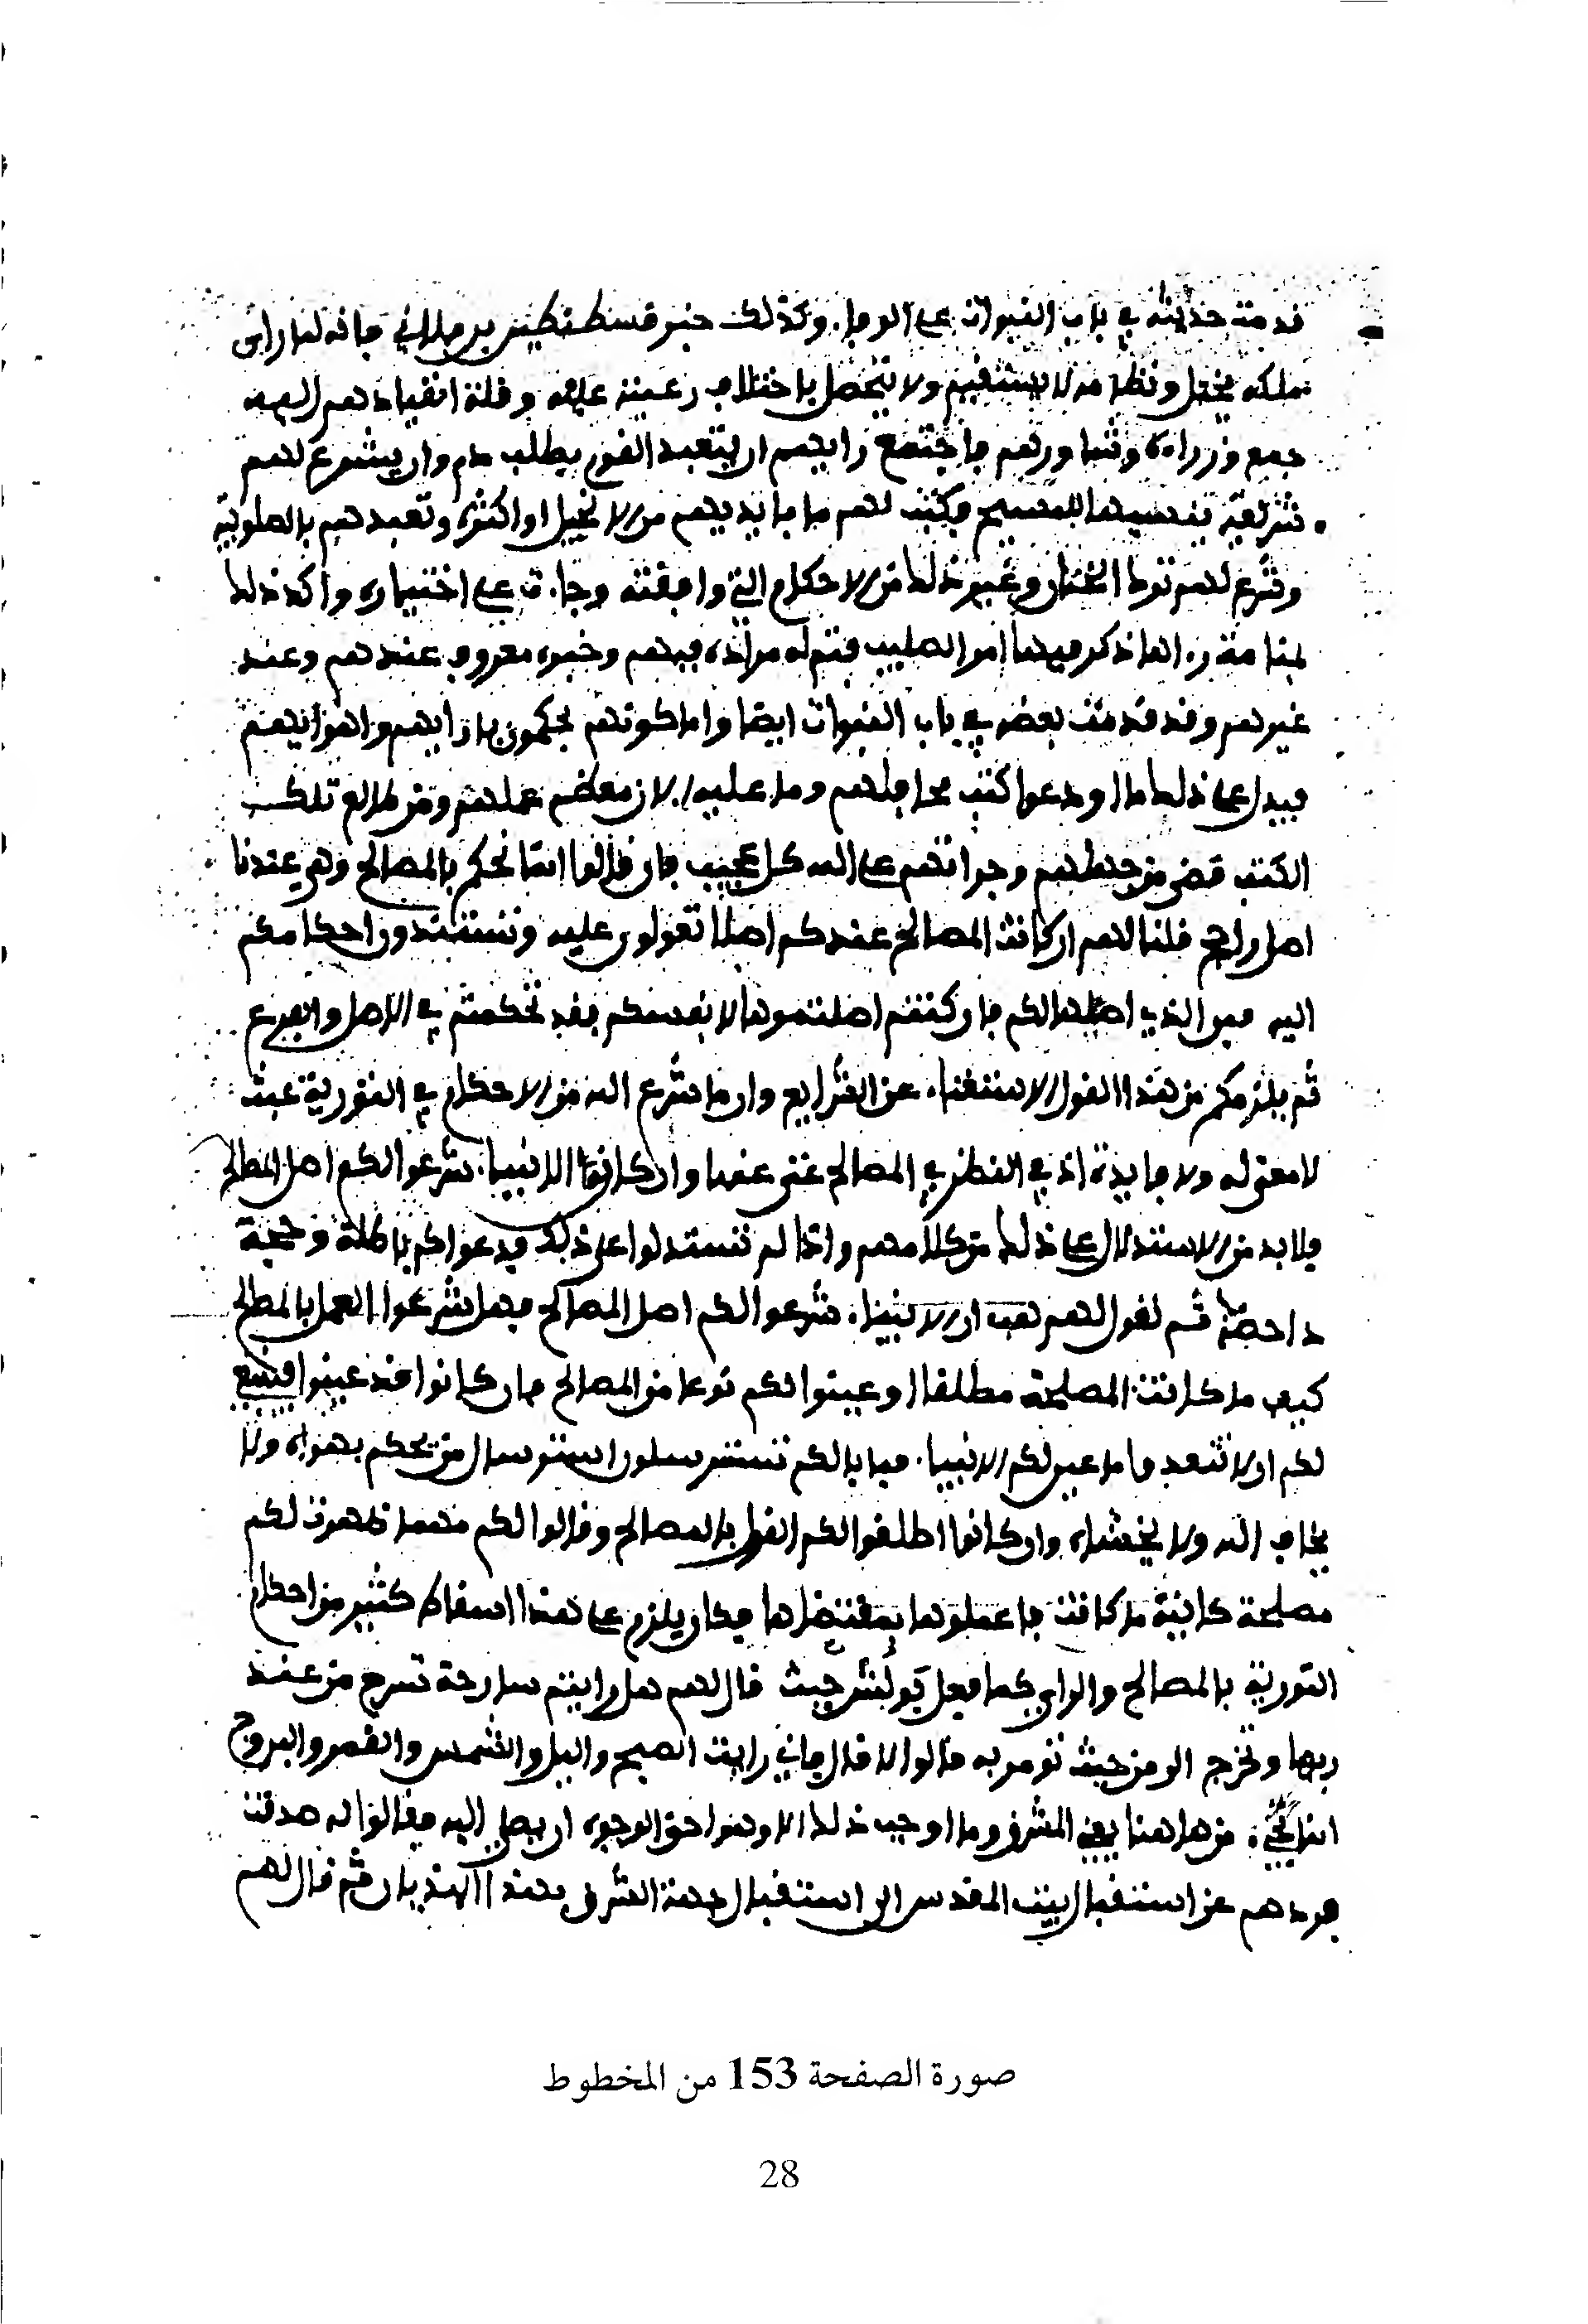 قدمت حديثه في باب النبوات على الوفاء. وكذلك خبر قسطنطين بن هلاني فانه لما راى
ملكه يختل ونظامه لا يستقيم ولا يتحصل باختلاف رعيته عليه وقلة انقيادهم اليه
جمع وزراءه وشاورهم فاجتمع رايهم ان يتعبد القوم بطلب دم وان يشرع لهم
شريعة ينسبها للمسيح فكتب لهم ما بايديهم من الانجيل او اكثره وتعبدهم بالصلوبية
وشرع لهم ترك الختان وغير ذلك من الاحكام التي وافقته وجاءت على اختياره واكد ذلك
بمنامة راها ذكر فيها امر الصليب فتم له مراده فيهم وخبره معروف عندهم وعند
غيرهم وقد قدمت بعضه في باب النبوات ايضا واما كونهم يحكمون بارايهم واهوائهم
فيدل على ذلك ما اودعوا كتب محافلهم وما عليه الان معظم عملهم ومن طالع تلك
الكتب قضى من جهلهم وجراتهم على الله كل عجيب فان قالوا انما نحكم بالمصالح وهي عندنا
اصل راجح قلنا لهم ان كانت المصالح عندكم اصلا تعولون عليه وتستندون احكامكم
اليه فمن الذي اصلها لكم فان كنتم اصلتموها لانفسكم فقد تحكمتم في الاصل والفرع
ثم يلزمكم من هذا القول الاستغناء عن الشرايع وان ما شرع الله من الاحكام في التورية عبث
لا معنى له ولا فايدة اذ في النظر في المصالح غنى عنها وان كانوا الانبياء شرعوا لكم اصل المصالح
فلا بد من الاستدلال على ذلك من كلامهم واذا لم تستدلوا على ذلك فدعواكم باطلة وحجة
داحضة ثم نقول لهم هب ان الانبياء شرعوا لكم اصل المصالح فهل شرعوا العمل بالمصالح
كيف ما كانت المصلحة مطلقا او عينوا لكم نوعا من المصالح فان كانوا قد عينوا فينبغي
لكم ان لا تتعدوا ما عين لكم الانبياء فما بالكم تسترسلون استرسال من يحكم بهواه ولا
يخاف الله ولا يخشاه وان كانوا اطلقوا لكم القول بالمصالح وقالوا لكم مهما ظهرت لكم
مصلحة كاينة ما كانت فاعملوها بمقتضاها فكان يلزم على هذا اسقاط كثير من احكام
التورية بالمصالح والراي كما فعل بولش حيث قال لهم هل رايتم سارحة تسرح من عند
ربها وتخرج الا من حيث تومر به قالوا لا قال فاني رايت الصبح والليل والشمس والقمر والبروج
انما تجيء من هاهنا يعني المشرق وما اوجب ذلك الا وهو احق الوجوه ان يصلى اليه فقالوا له صدقت
فردهم عن استقبال بيت المقدس الى استقبال جهة الشرق بهذا الهذيان ثم قال لهم
صورة الصفحة 153 من المخطوط
28